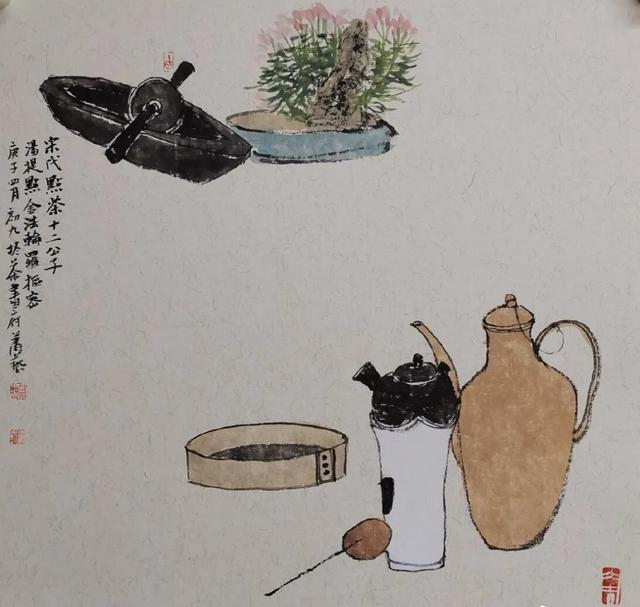 宋代點茶十二公子
湯提點金法輪羅樞密
庚子四月初九於茶書